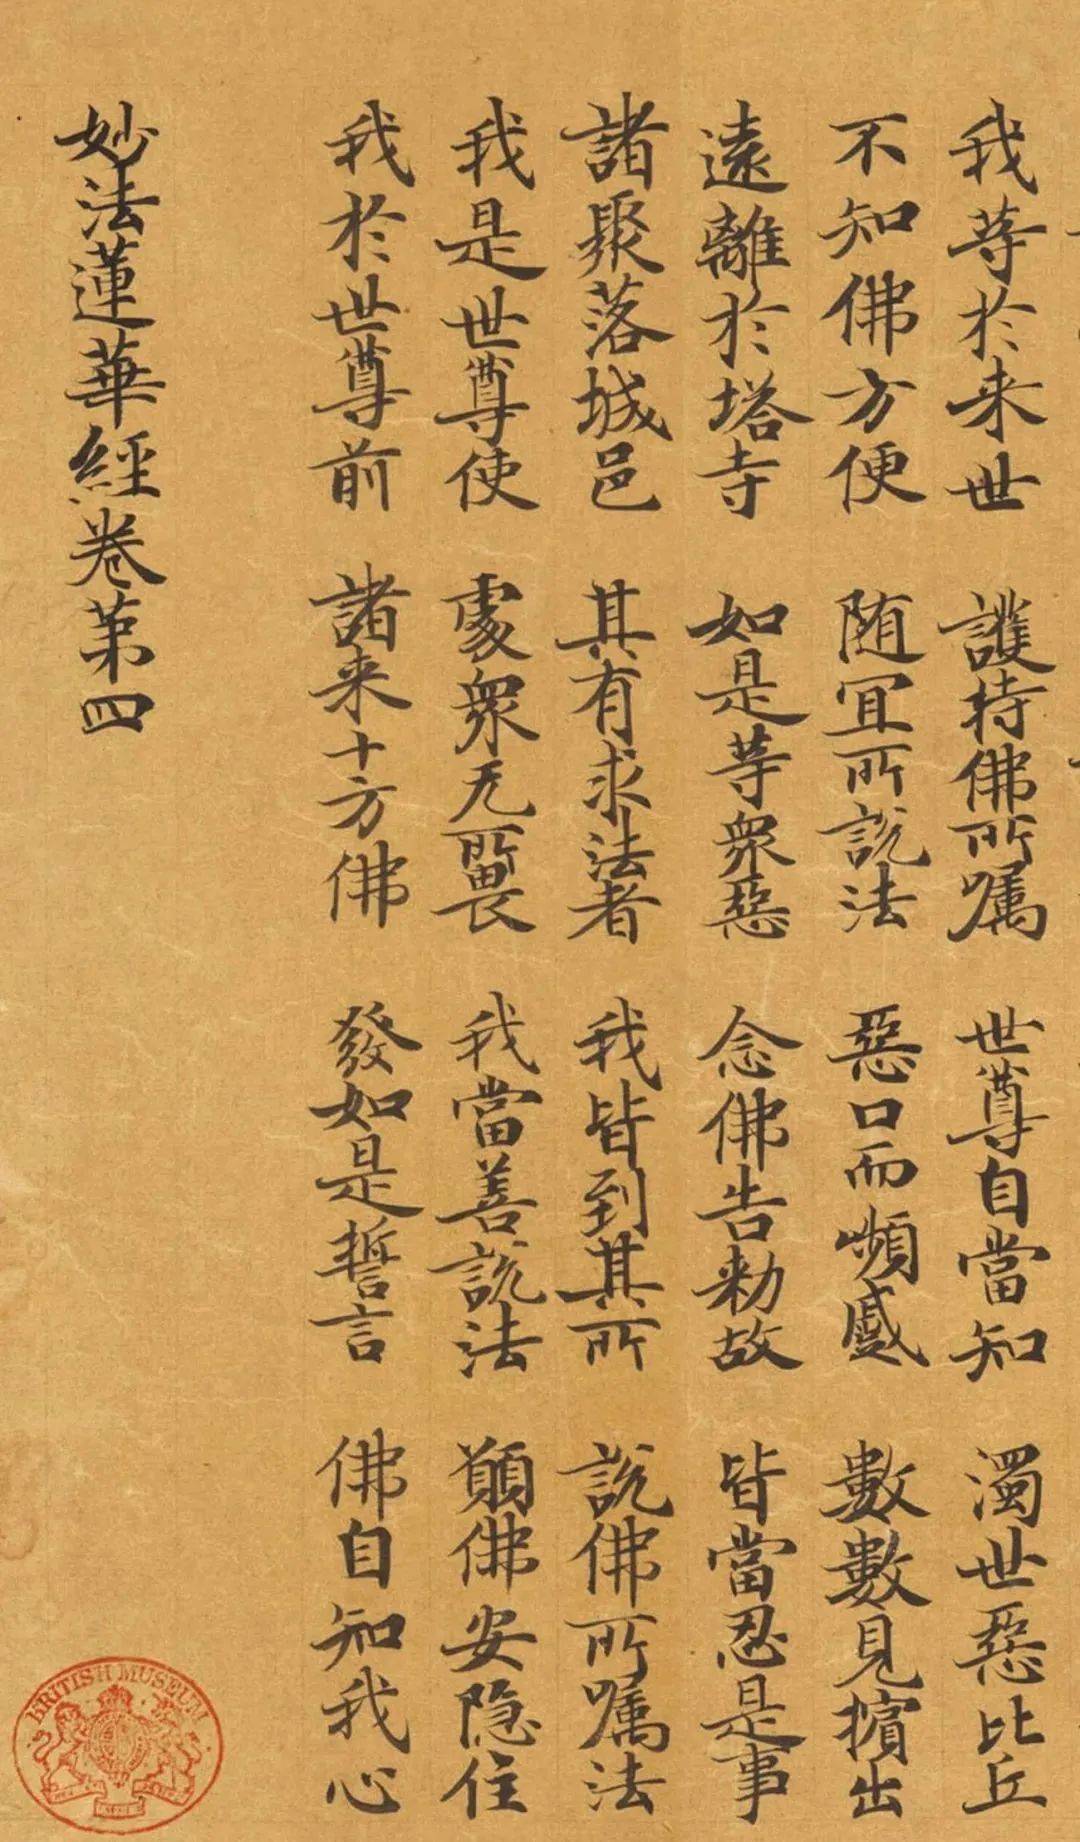 我等於来世 護持佛所嘱 世尊自當知 濁世惡比丘
不知佛方便 随冝所說法 惡口而頻蹙 數數見擯出
遠離於塔寺 如是等衆惡 念佛告勑故 皆當忍是事
諸聚落城邑 其有求法者 我皆到其所 說佛所嘱法
我是世尊使 處衆无所畏 我當善說法 願佛安隐住
我於世尊前 諸来十方佛 發如是誓言 佛自知我心
妙法蓮華經卷第四
BRITISH MUSEUM